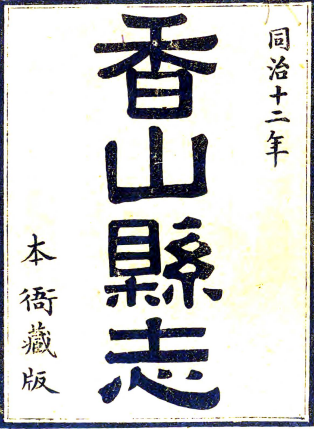 同治十二年
香山縣志
本衙藏版